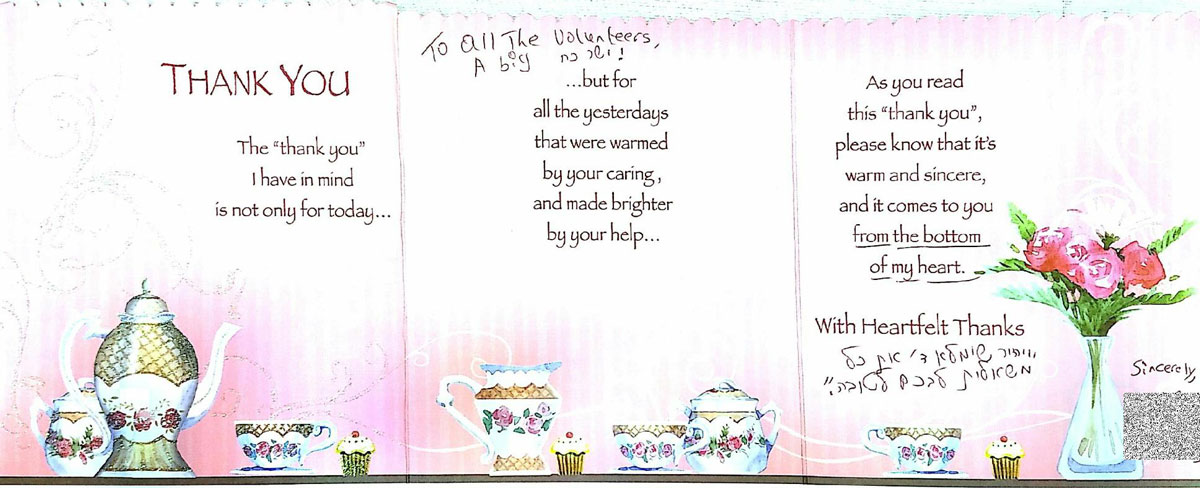 THANK YOU
The “thank you”
I have in mind
is not only for today...
To All The Volunteers,
A big ישר כח!
...but for
all the yesterdays
that were warmed
by your caring,
and made brighter
by your help...
As you read
this “thank you”,
please know that it's
warm and sincere,
and it comes to you
from the bottom
of my heart.
With Heartfelt Thanks
שימלא ד' את כל
משאלות לבכם לטובה!!
Sincerely,